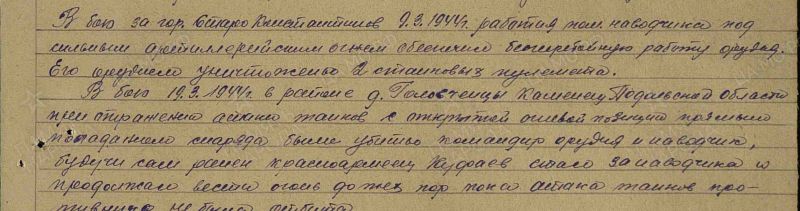 В бою за гор. Старо Константинов 9.3.1944г. работая пом. наводчика под
сильным артиллерийским огнем обеспечил бесперебойную работу орудия.
Его орудием уничтожено 2 станковых пулемета.
В бою 19.3.1944г. в районе д. Головченцы Каменец Подольской области
при отражении атаки танков с открытой огневой позиции прямым
попаданием снаряда были убиты командир орудия и наводчик,
будучи сам ранен красноармеец стал за наводчика и
продолжал вести огонь до тех пор пока атака танков про-
тивника не была отбита